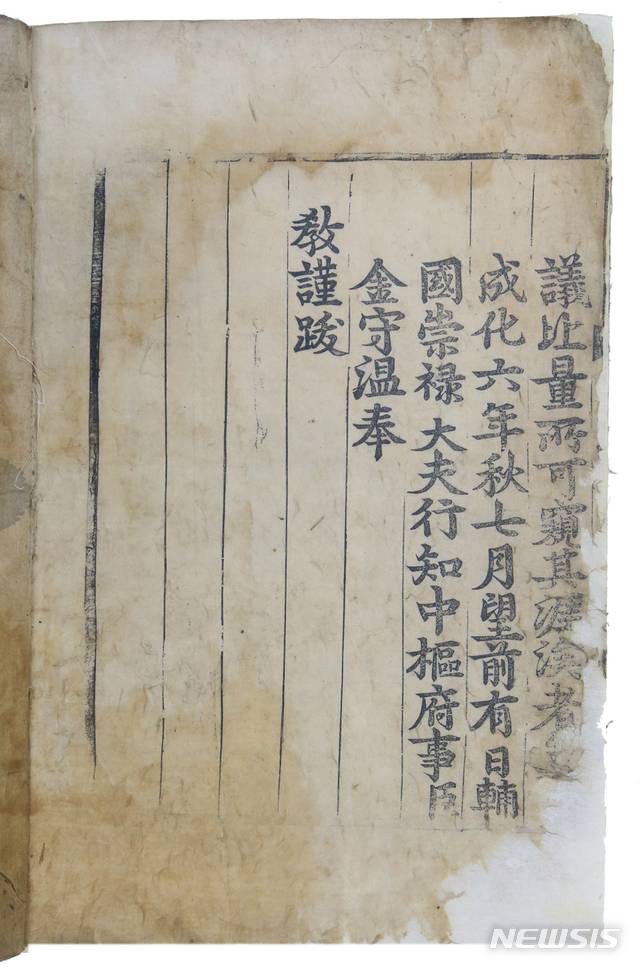 議比量所可窺其涯涘者
成化六年秋七月望前有日輔
國崇禄大夫行知中樞府事臣
金守温奉
教謹跋
NEWSIS